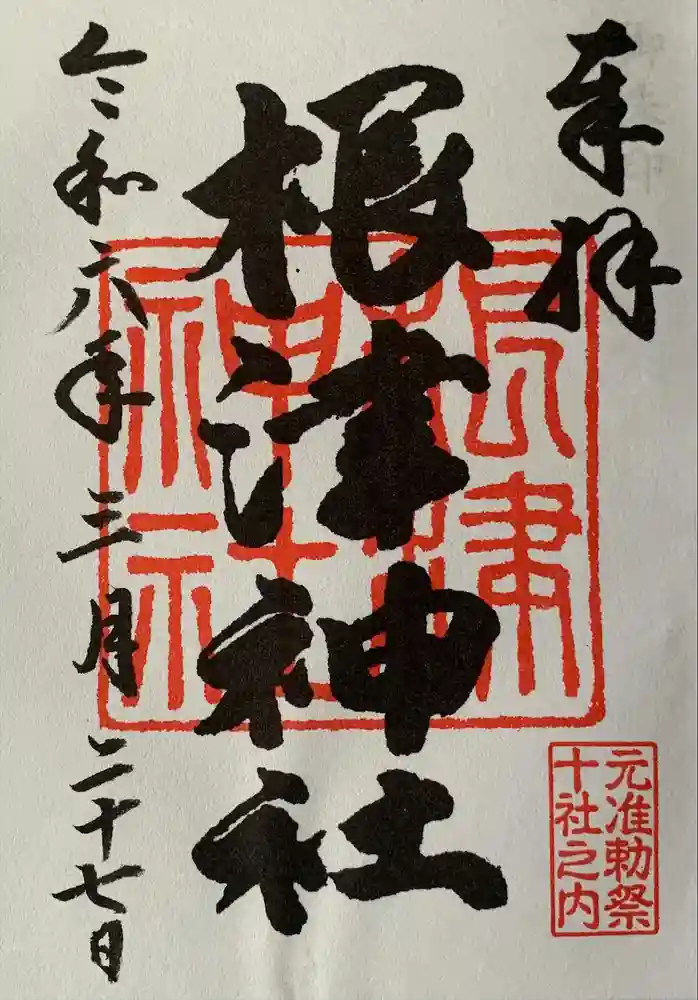 奉拝
根津神社
令和六年三月二十七日
根津
神社
元准勅祭
十社之内